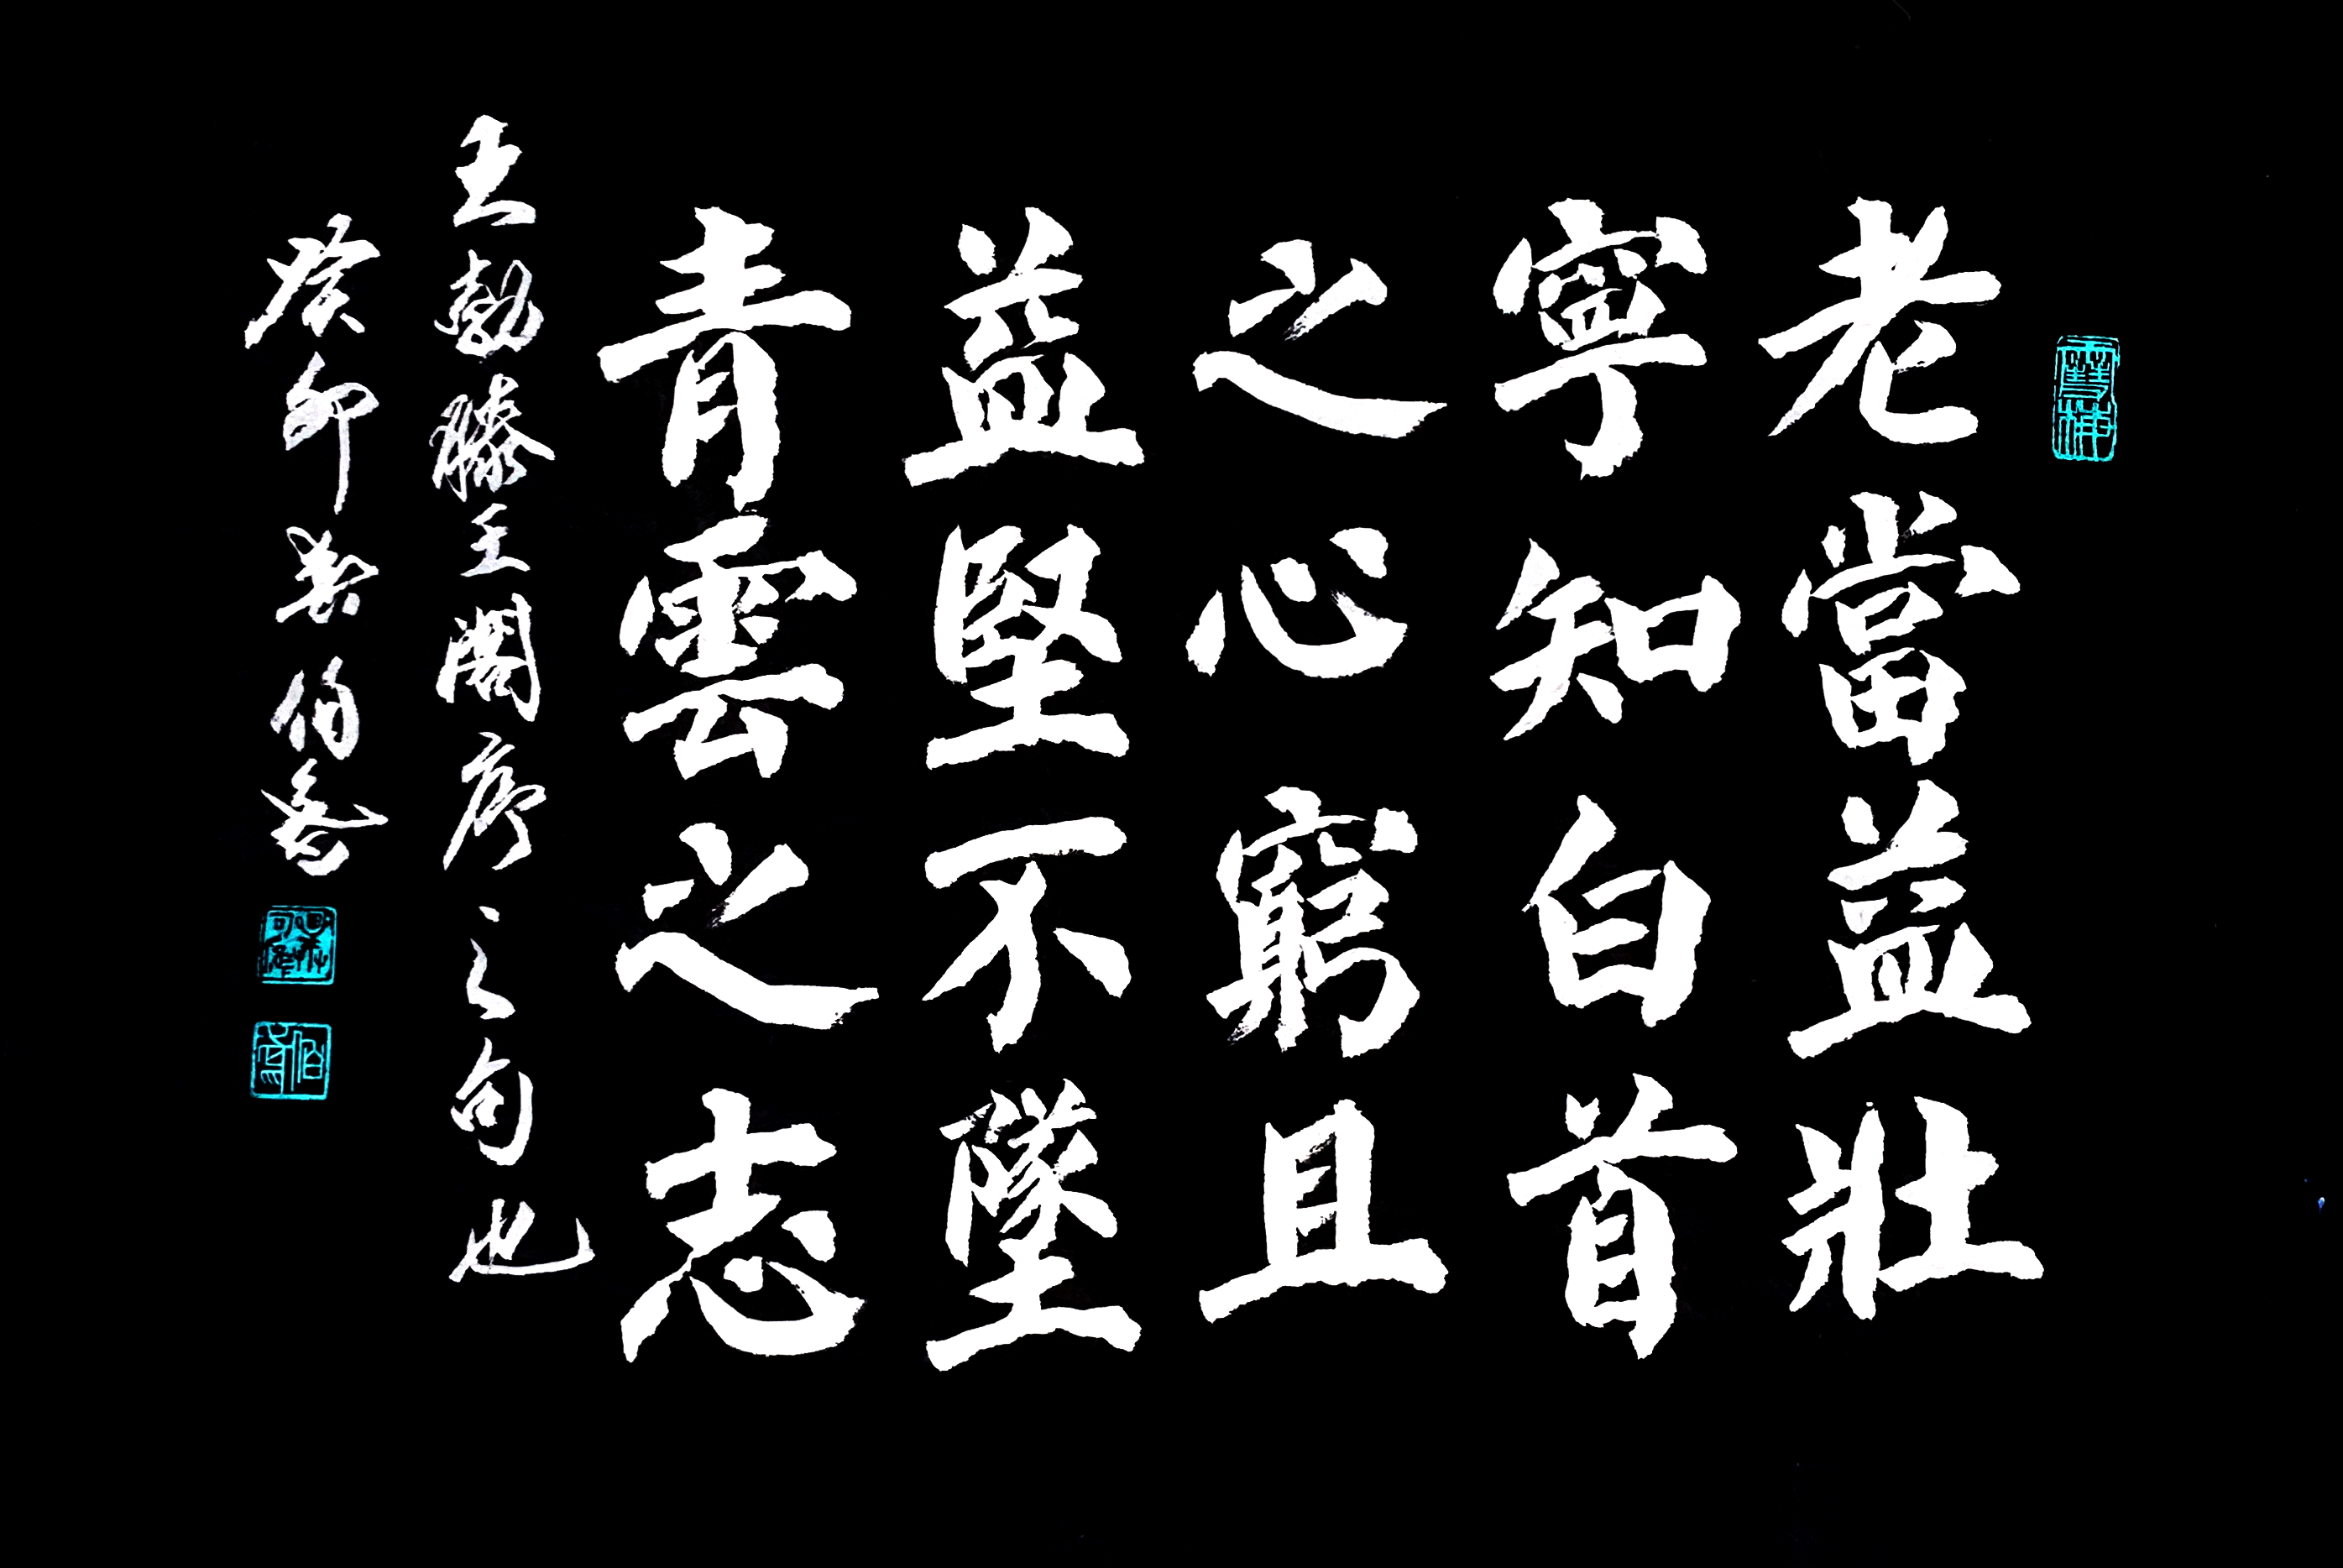 老當益壯
寧知白首
之心窮且
益堅不墜
青雲之志
王勃滕王閣序之句也
卯伯